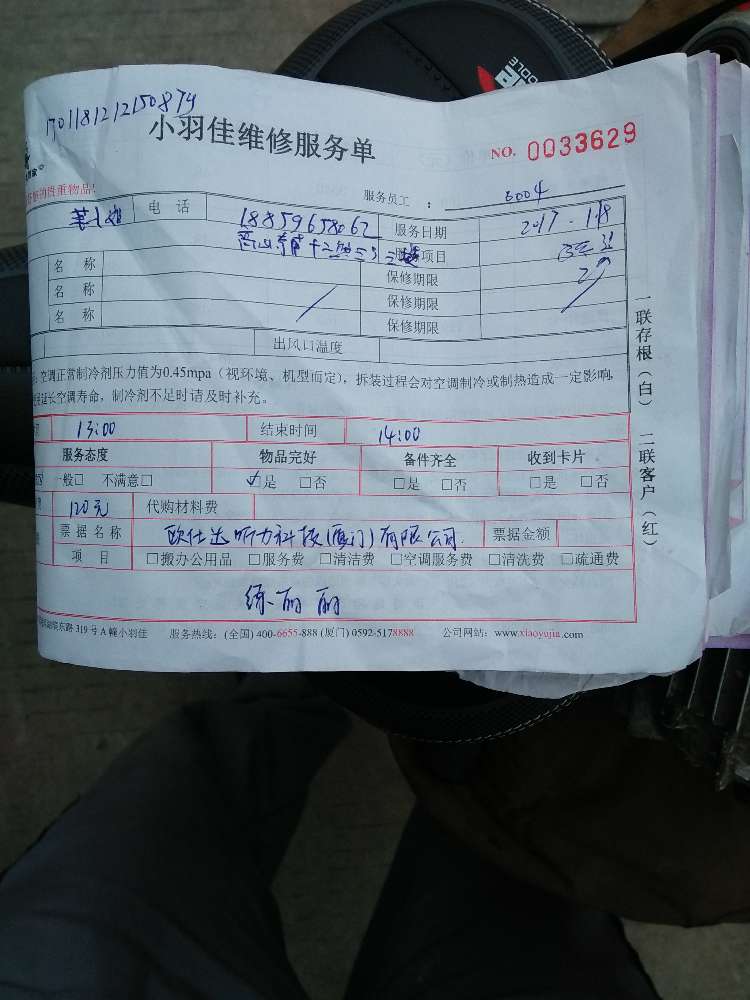 1701181212150874
小羽佳维修服务单
NO. 0033629
贵重物品!
服务员工 : 6004
电 话 18859658062 服务日期 2017.1.18
项目
名 称 保修期限
名 称 保修期限
名 称 保修期限
出风口温度
: 空调正常制冷剂压力值为0.45mpa(视环境、机型而定),拆装过程会对空调制冷或制热造成一定影响,
延长空调寿命,制冷剂不足时请及时补充。
13:00 结束时间 14:00
服务态度 物品完好 备件齐全 收到卡片
一般□ 不满意□ ☑是 □否 □是 □否 □是 □否
120元 代购材料费
票据名称 欧仕达听力科技(厦门)有限公司 票据金额
项 目 □搬办公用品 □服务费 □清洁费 □空调服务费 □清洗费 □疏通费
练丽丽
东路 319 号 A 幢小羽佳 服务热线:(全国) 400-6655-888 (厦门) 0592-5178888 公司网站:www.xiaoyujia.com
一联存根(白) 二联客户(红)